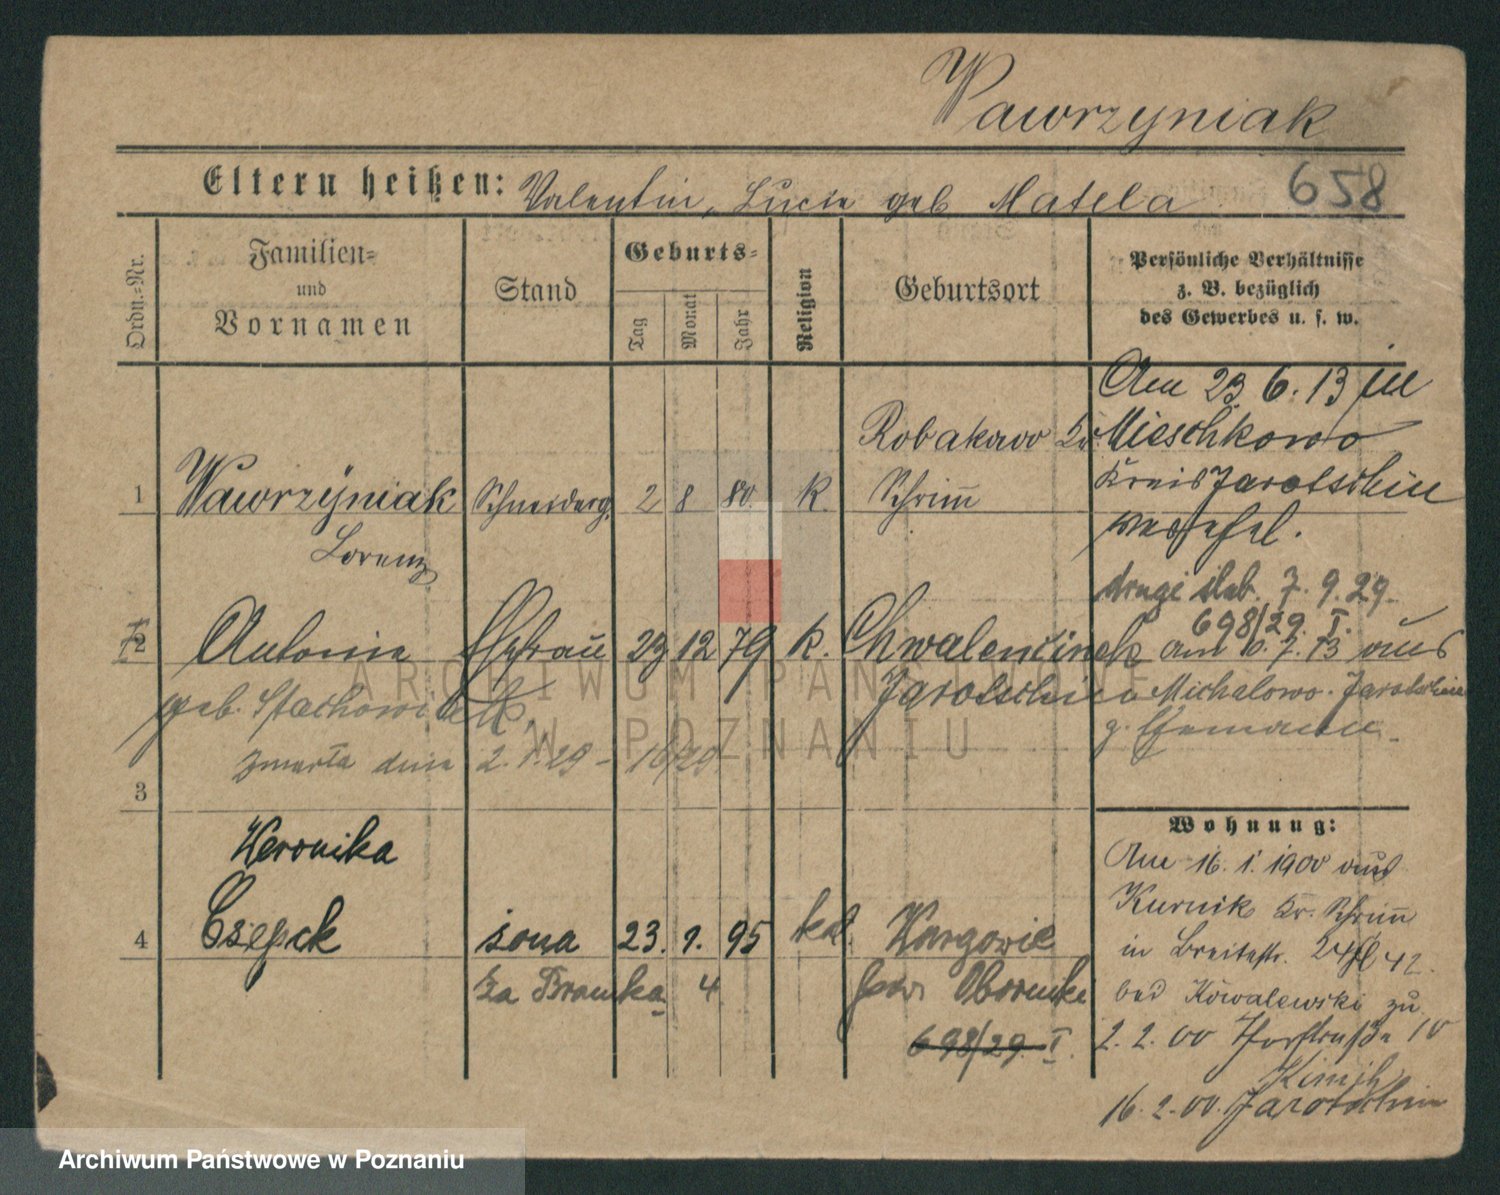 Wawrzyniak
Eltern heißen: Valentin, Lucie geb Matela 658
Ordn.-Nr.
Familien- und Vornamen
Stand
Geburts-
Tag
Monat
Jahr
Religion
Geburtsort
Persönliche Verhältnisse
z. B. bezüglich
des Gewerbes u. s. w.
Am 23. 6. 13 in
Robakowo Kr. Mieschkowo
Kreis Jarotschin
1 Wawrzÿniak Schneiderg. 2 8 80. K. Schrim̄
Lorenz
drugi ślub. 7. 9. 29.
698/29. I.
2 Antonie Ehefrau 29 12 79 K. Chwalencinek am 10. 7. 13 aus
geb. Stachowiak Jarotschin Michalowo. Jarotschin
z. Ehemann.
zmarła dnia 2. 1. 29 - 16/29
3
Wohnung:
Weronika
Am 16. 1. 1900 aus
Kurnik Kr. Schrim̄
4 Czepek żona 23. 1. 95 kat. Wargowie
in Breitestr. 24
42.
za Bramką 4 pow. Obornicki
bei Kowalewski zu
698/29. I.
2. 2. 00 Thorstraße 10
16. 2. 00. Jarotschin
ARCHIWUM PAŃSTWOWE
W POZNANIU
Archiwum Państwowe w Poznaniu